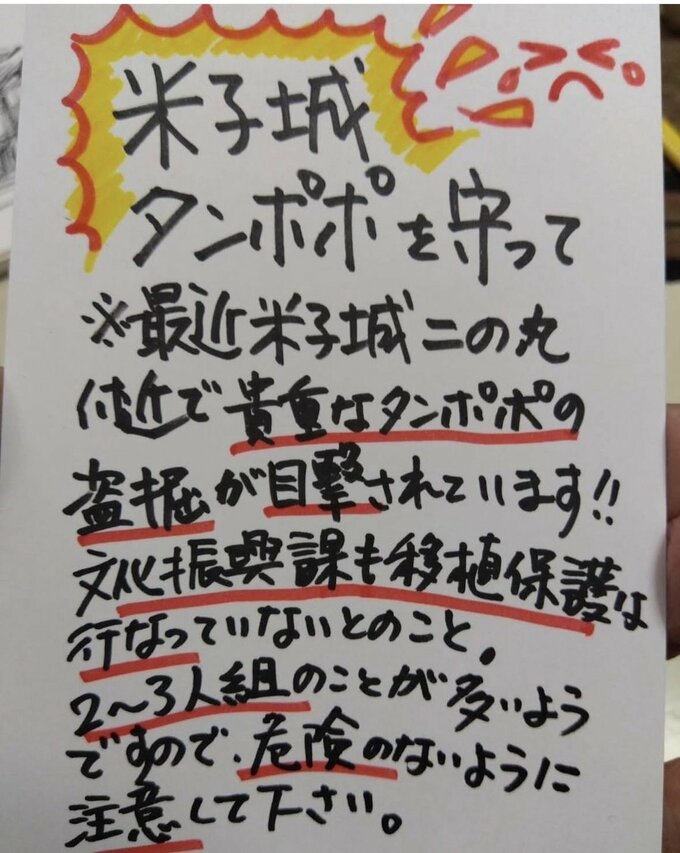 米子城
タンポポを守って
※最近米子城二の丸
付近で貴重なタンポポの
盗掘が目撃されています!!
文化振興課も移植保護は
行なっていないとのこと。
2〜3人組のことが多いよう
ですので、危険のないように
注意して下さい。